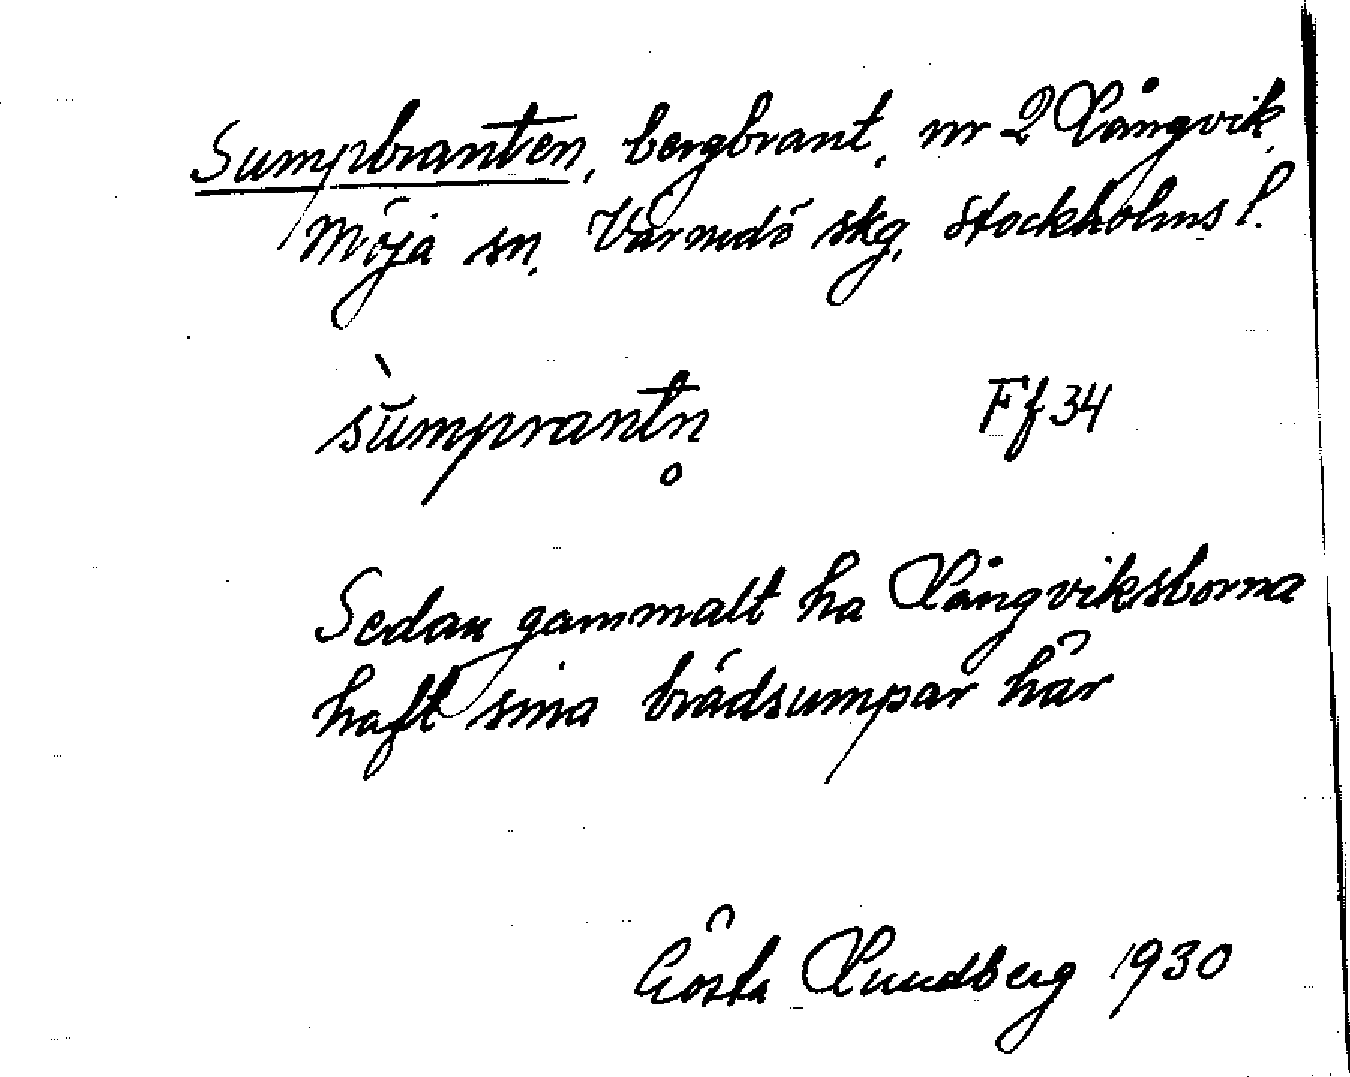 Sumpbranten, bergbrant, nr 2 Långvik,
Möja sn, Värmdö skg, Stockholms l.
sùmprantn̥
Ff 34
Sedan gammalt ha Långviksborna
haft sina brädsumpar här
Gösta Lundberg 1930